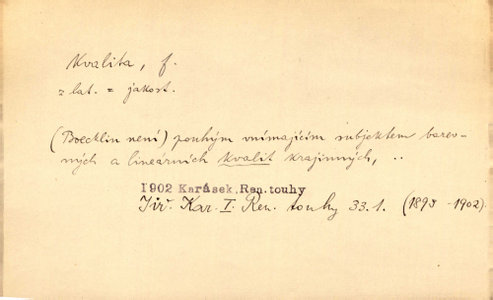 Kvalita, f.
z lat. = jakost.
(Boecklin není) pouhým vnímajícím subjektem barev-
ných a lineárních kvalit krajinných, ..
1902 Karásek, Ren. touhy
Jiř. Kar. I. Ren. touhy 33.1. (1895-1902).